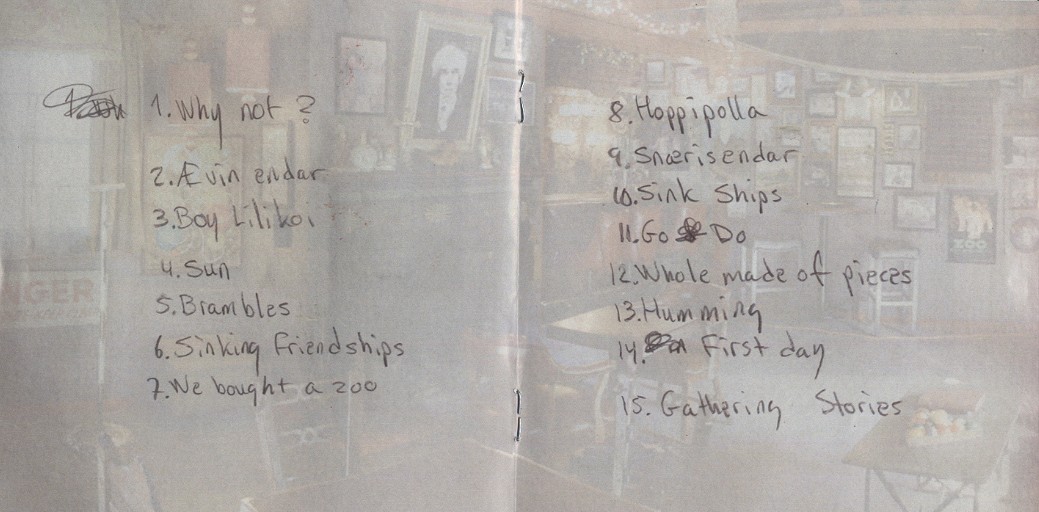 1. Why not?
2. Ævin endar
3. Boy Lilikoi
4. Sun
5. Brambles
6. Sinking Friendships
7. We bought a zoo
8. Hoppipolla
9. Snærisendar
10. Sink Ships
11. Go Do
12. Whole made of pieces
13. Humming
14. First day
15. Gathering Stories
NGER
ZOO